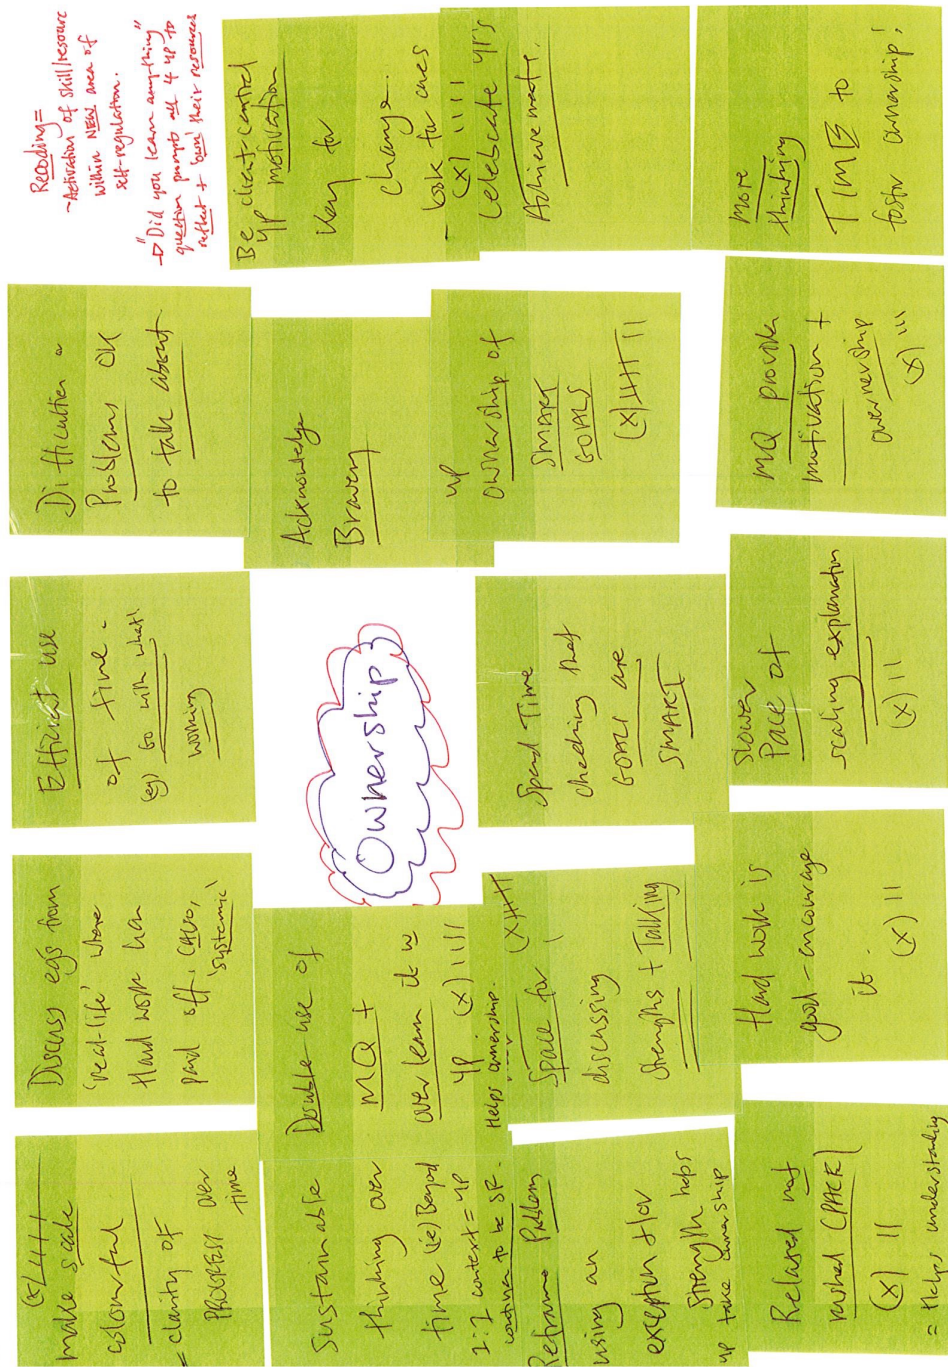 (x) 4HT
make scale
colourful
= clarity of
PROGRESS over
time
Discuss egs from
'real-life' where
Hard work has
paid off, CAUSO,
'systemic'
Efficient use
of time.
(eg) Go with what's
working
Difficulties &
Problems OK
to talk about
Recoding =
- Activation of skill/resource
within NEW area of
self-regulation.
→ "Did you learn anything"
question prompts all 4 YP to
reflect + 'own' their resources
Sustainable
thinking over
time (ie) Beyond
1:1 context = YP
continue to be SF.
Double use of
MQ +
over learn it w
YP (x) IIII
Helps ownership.
Ownership
Acknowledge
Bravery
Be client-central
YP motivation
Key for
change.
- look for cues
(x) IIII
Celebrate YP's
Achievements.
Reframe Problem
using an
exception +/or
Strength helps
YP take ownership
Space for (XHHT
discussing
Strengths + Talking
Spend Time
checking that
GOALS are
SMART
YP
ownership of
SMART
GOALS
(x) HHT II
Relaxed not
rushed (PACE)
(x) II
= Helps understanding
Hard work is
good - encourage
it.
(x) II
Slower
Pace of
scaling explanation
(x) II
MQ provides
motivation +
ownership
(x) III
More
thinking
TIME to
foster ownership!